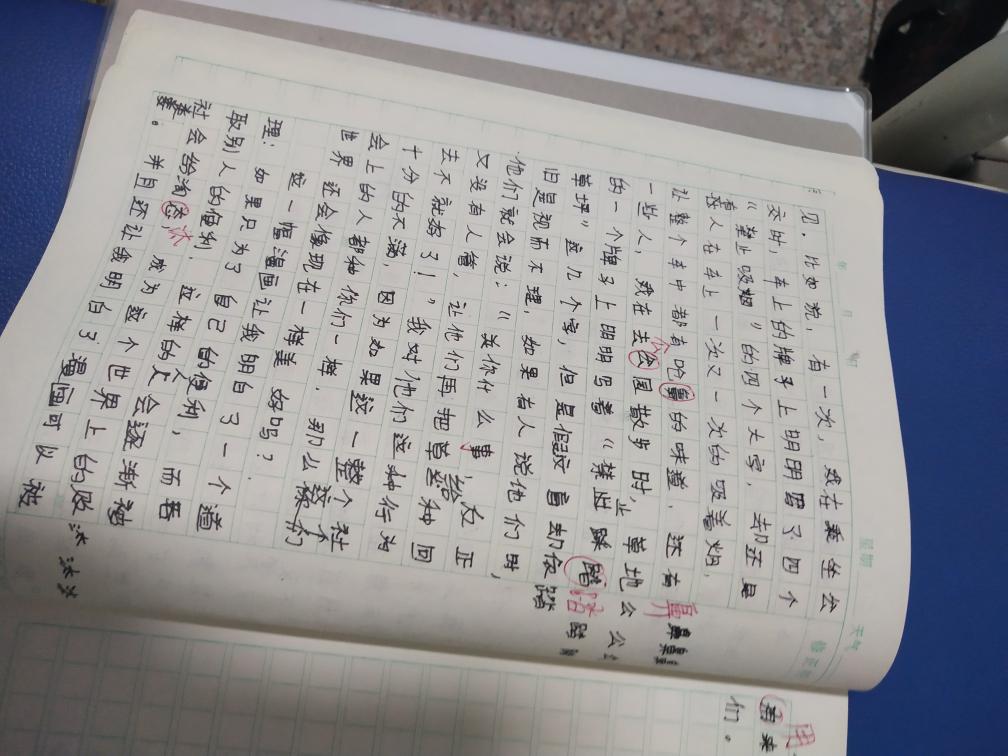 年 月 日
星期
天气
见，比如说，有一次，我在乘坐公
交时，车上的牌子上明明写了四个
“禁止吸烟”的四个大字，却还是
有人在车上一次又一次的吸着烟，
让整个车中都有呛鼻的味道，还有
一些人，我在去公园散步时，草地
的一个牌子上明明写着“禁止踩踏
草坪”这几个字，但是假
旧是视而不理，如果有人说他们时，
他们就会说：“关你什么事，反正
又没有人管，让他们再把草种回
去不就好了！”我对他们这种行为
十分的不满，因为如果这一整个社
会上的人都和你们一样，那么
世界还会像现在一样美好吗？
这一幅漫画让我明白了一个道
理：如果只为了自己的便利，而
取别人的便利，这样的人会逐渐被
社会给淘汰，成为这个世界上的败
类。并且还让我明白了漫画可以
鼻
踏
汰 汰 汰
用来
们。